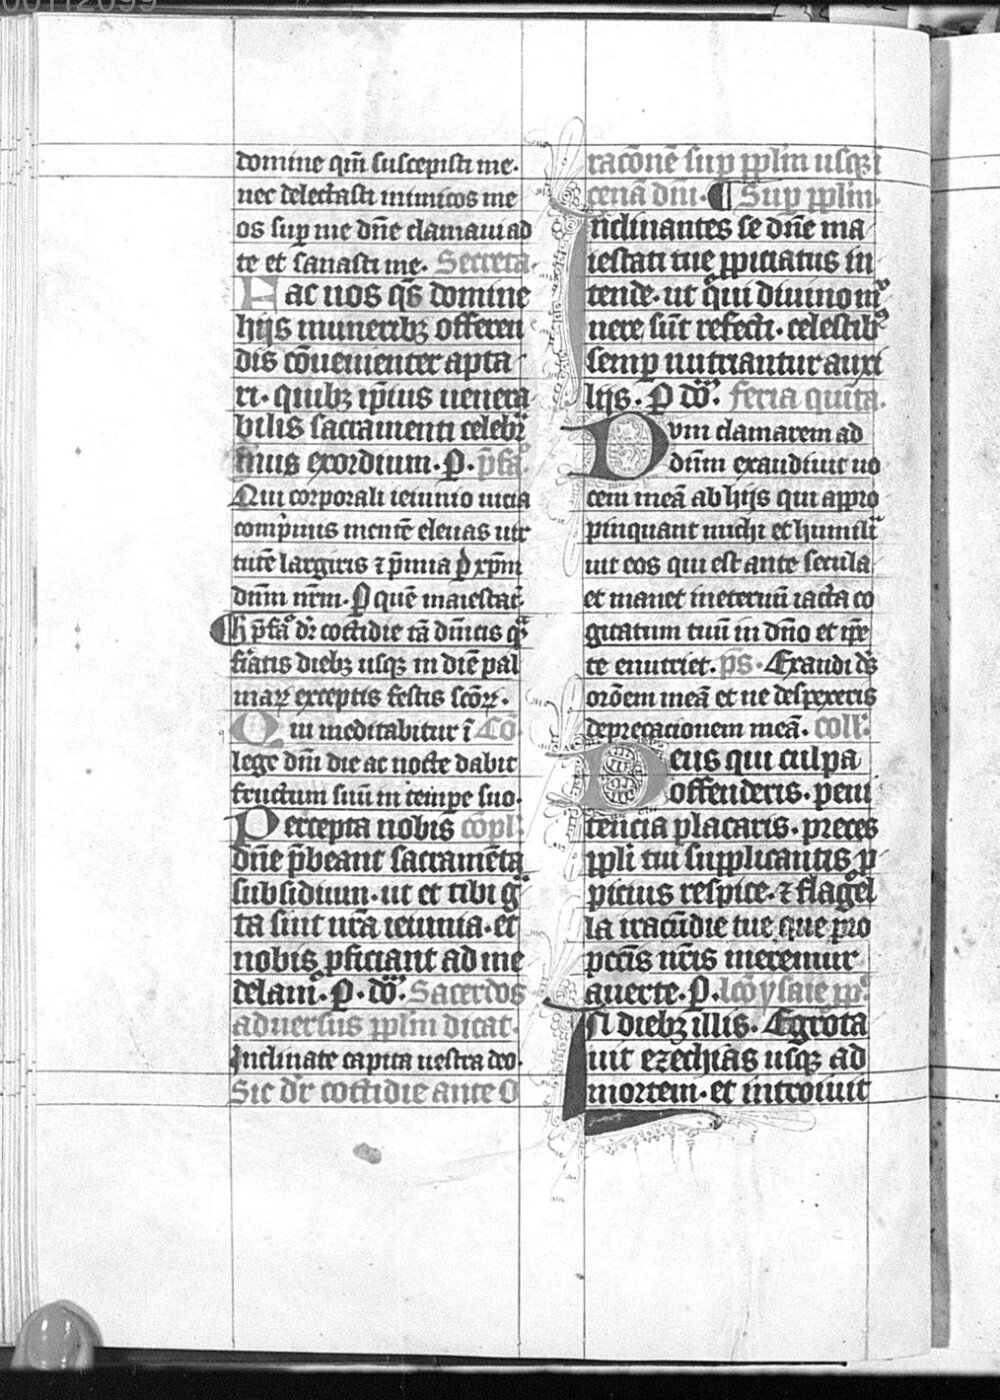 00112099
domine qm̄ suscepisti me·
nec delectasti inimicos me
os sup̱ me dn̄e clamaui ad
te et sanasti me· Secreta·
Hac nos qs̄ domine
hijs munerib; offeren
dis cōuenienter apta
ri· quib; ip̄ius uenera
bilis sacramenti celebr̄
amus exordium· P̱· p̄fa͡·
Qui corporali ieiunio uicia
comp̄mis mentē eleuas uir
tutē largiris ⁊ p̄mia p̱ xp̄m
dn̄m nr̄m· P̱ quē maiestat̄·
¶ H̄ p̄fa͡ dr̄ cottidie tā dn̄icis q̄
fr̄iatis dieb; usq; in diē pal
marꝝ exceptis festis sc̄oꝝ·
Qui meditabitur ī Cō·
lege dn̄i die ac nocte dabit
fructum suū in temp̱e suo·
Percepta nobis cōpl̄·
dn̄e p̄beant sacramēta
subsidium· ut et tibi ḡ
ta sint nr̄a ieiunia· et
nobis p̱ficiant ad me
delam̄· P̱· dō· Sacerdos
aduersus pp̄lm dicat·
Inclinate capita uestra deo·
Sic dr̄ cottidie ante o
racōnē sup̱ pp̄lm usq;
cenā dn̄i· ¶ Sup̱ pp̄lm·
Inclinantes se dn̄e ma
iestati tue ꝓpiciatus in
tende· ut qui diuino m̄
nere sūt refecti· celestib;
semp̱ nutriantur auxi
lijs· P̱ dō· feria quīta·
Dum clamarem ad
dn̄m exaudiuit uo
cem meā ab hijs qui appro
pinquant michi et humilia
uit eos qui est ante secula
et manet in eternū iacta co
gitatum tuū in dn̄o et ip̄e
te enutriet· p̄s· Exaudi ds̄
orōem meā et ne despexeris
deprecationem meā· coll̄·
Deus qui culpa
offenderis· peni
tencia placaris· preces
pp̄li tui supplicantis ꝓ
picius respice· ⁊ flagel
la iracūdie tue que pro
pcc̄is nr̄is meremur
auerte· P̱· lcō ysaie pp̄·
In dieb; illis· Egrota
uit ezechias usq; ad
mortem· et introiuit